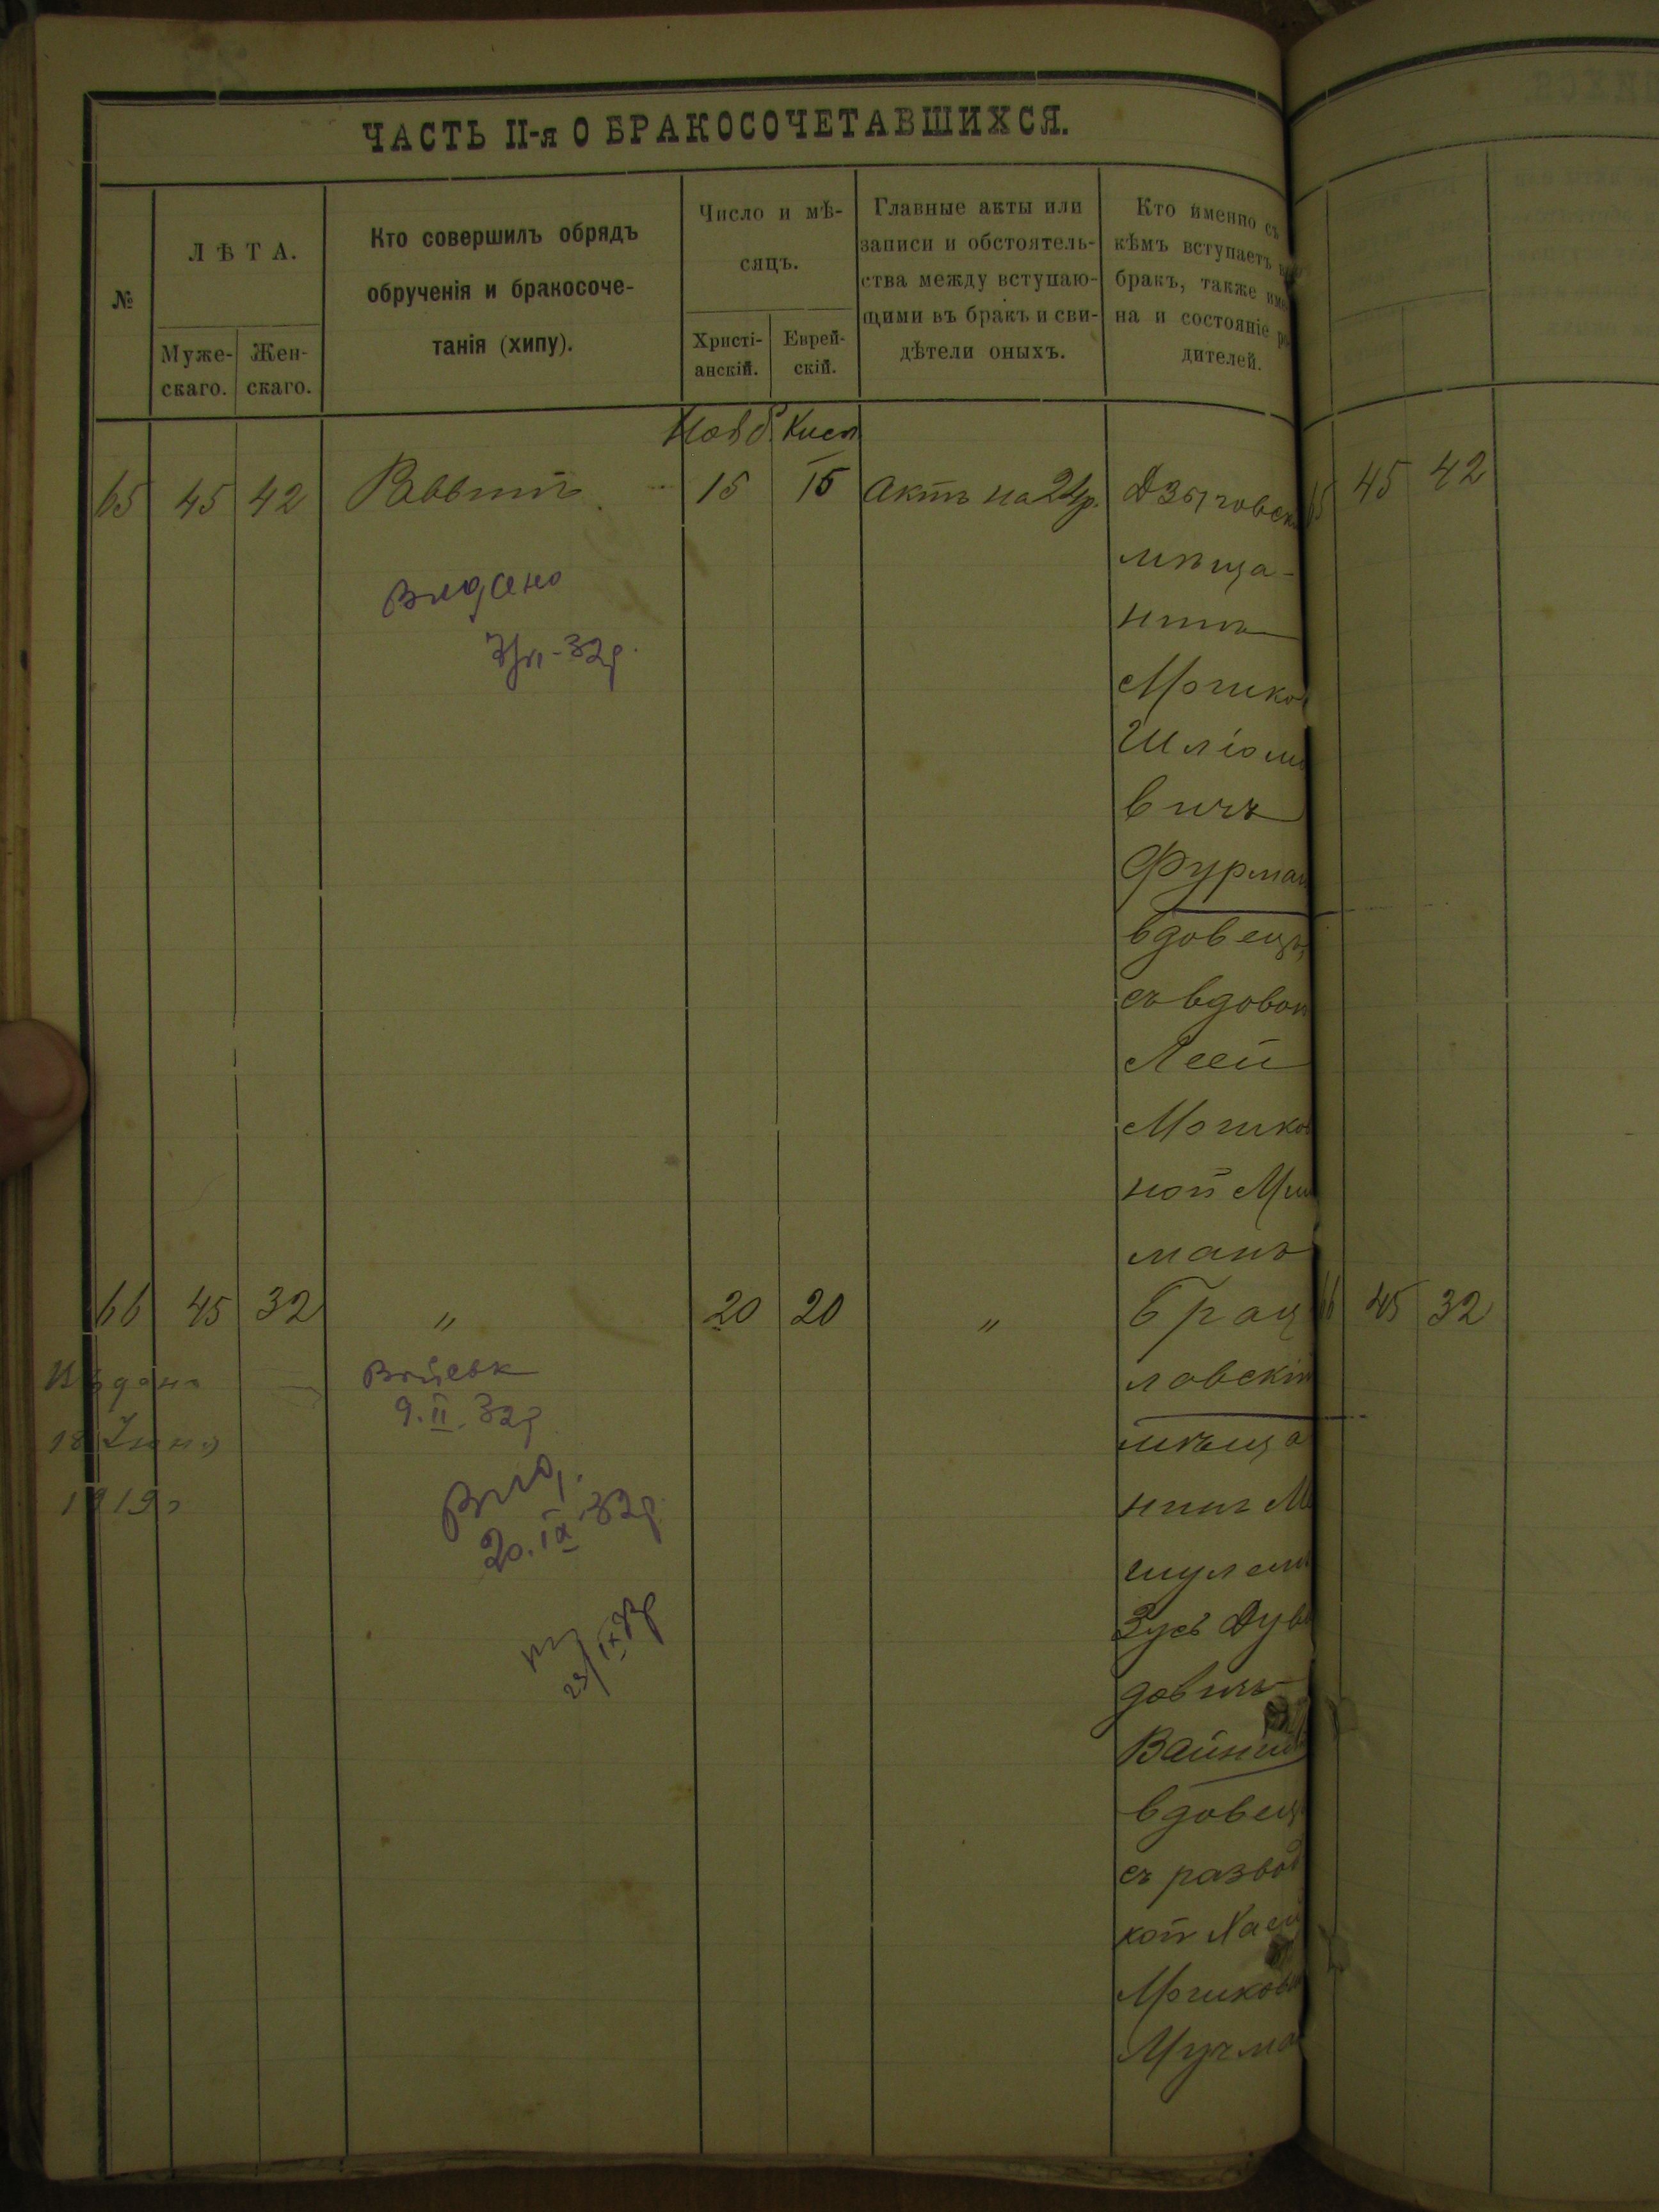 ЧАСТЬ II-я О БРАКОСОЧЕТАВШИХСЯ.
№
ЛѢТА.
Муже-
скаго.
Жен-
скаго.
Кто совершилъ обрядъ
обрученія и бракосоче-
танія (хипу).
Число и мѣ-
сяцъ.
Христі-
анскій.
Еврей-
скій.
Главные акты или
записи и обстоятель-
ства между вступаю-
щими въ бракъ и сви-
дѣтели оныхъ.
Кто именно съ
кѣмъ вступаетъ
бракъ, также
на и состояніе
дителей.
Нояб. Кисл
65 45 42 Раввинъ 15 15 Актъ на 24р. Дзыговск
мѣща-
нинъ
Мошко
Шліомо
вичъ
Фурман
вдовецъ,
съ вдовою
Леей
Мошков
ной
манъ
65 45 42
Видано
32р.
66 45 32 " 20 20 " Брац
лавскій
мѣща
нинъ М
шулем
Зусь Дуви
довичъ
Вайн
вдовецъ
съ развод
кой Хаей
Мошков
Мучма
66 45 32
Выдано
18 Іюня
1919г
9.II.32р
Вид.
20.IX 32р
23/IX